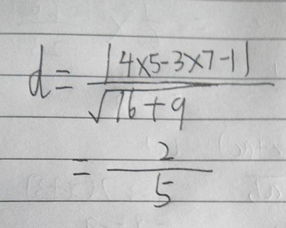 d = |4×5-3×7-1| / √16+9
= 2 / 5